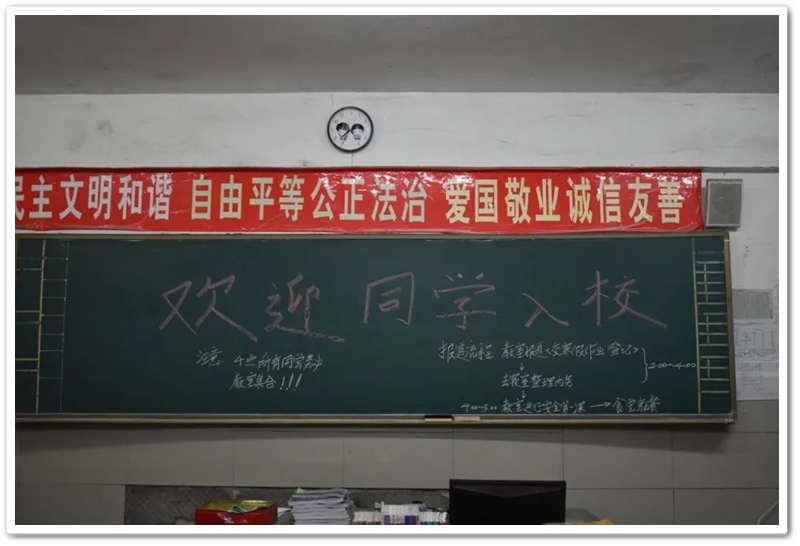 民主文明和谐 自由平等公正法治 爱国敬业诚信友善
欢迎同学入校
注意: 4点所有同学
教室集合!!!
报道流程 教室报道<交寒假作业 登记>
2:00-4:00
去寝室整理内务
4:00-5:00 教室进行安全第一课 → 食堂就餐